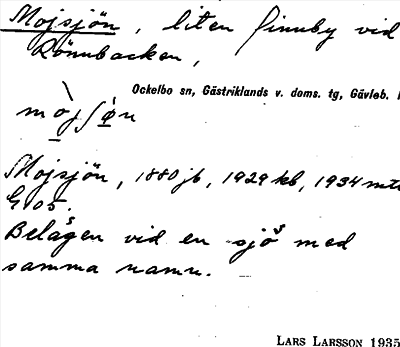 Mojsjön, liten finnby vid
Rönnbacken,
Ockelbo sn, Gästriklands v. doms. tg, Gävleb.
Mojsjön, 1880 jb, 1929 kb, 1934 mtl
G 105.
Belägen vid en sjö med
samma namn.
LARS LARSSON 1935